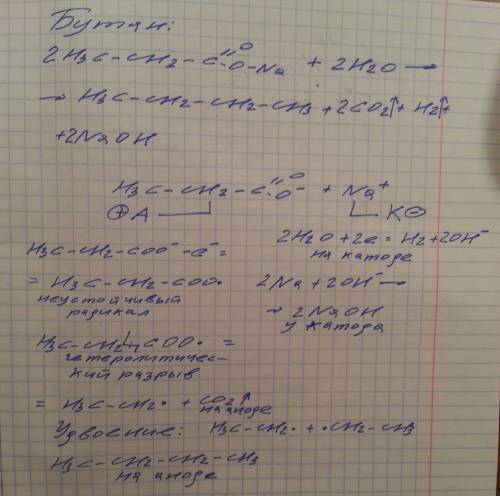 Бутан:
2H3C-CH2-C(=O)-O-Na + 2H2O →
→ H3C-CH2-CH2-CH3 + 2CO2↑ + H2↑ +
+2NaOH
H3C-CH2-C(=O)-O⁻ + Na⁺
⊕A K⊖
H3C-CH2-COO⁻ -e⁻ =
2H2O+2e = H2+2OH⁻
на катоде
= H3C-CH2-COO•
неустойчивый
радикал
2Na + 2OH⁻ →
→ 2NaOH
у катода
H3C-CH2-COO• =
гетеролитичес-
кий разрыв
= H3C-CH2• + CO2↑
на аноде
Удвоение: H3C-CH2• + •CH2-CH3
H3C-CH2-CH2-CH3
на аноде